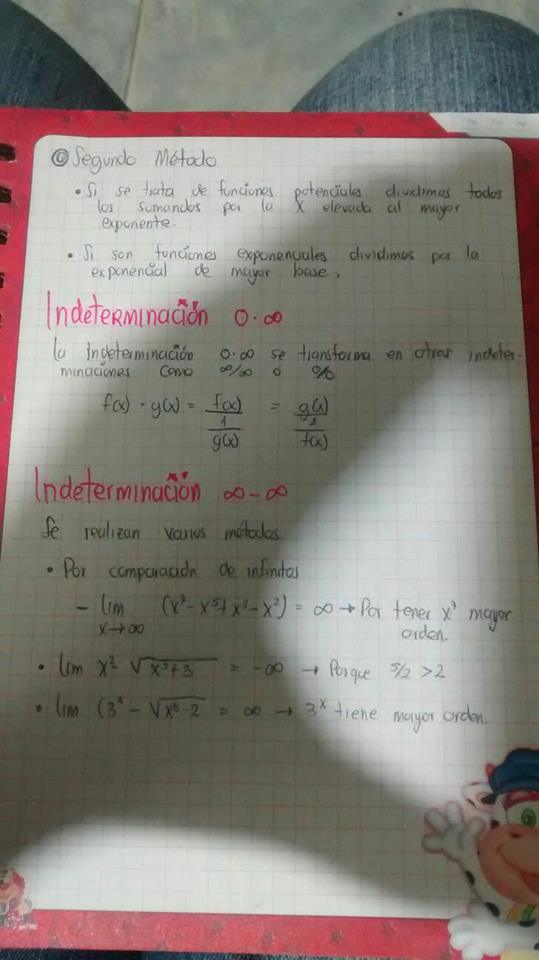 © Segundo Método
• Si se trata de funciones potenciales dividimos todos
los sumandos por la x elevada al mayor
exponente.
• Si son funciones exponenciales dividimos por la
exponencial de mayor base,
Indeterminación 0·∞
la indeterminación 0·∞ se transforma en otras indeter-
minaciones como ∞/∞ ó 0/0
f(x) · g(x) = f(x) / (1/g(x)) = g(x) / (1/f(x))
Indeterminación ∞-∞
Se realizan varios métodos
• Por comparación de infinitos
- lim x→∞ (x⁷ - x⁵ + x³ - x²) = ∞ → Por tener x⁷ mayor
orden.
• lim x² - √x⁵+3 = -∞ → Porque 5/2 > 2
• lim (3ˣ - √x⁶-2 = ∞ → 3ˣ tiene mayor orden.